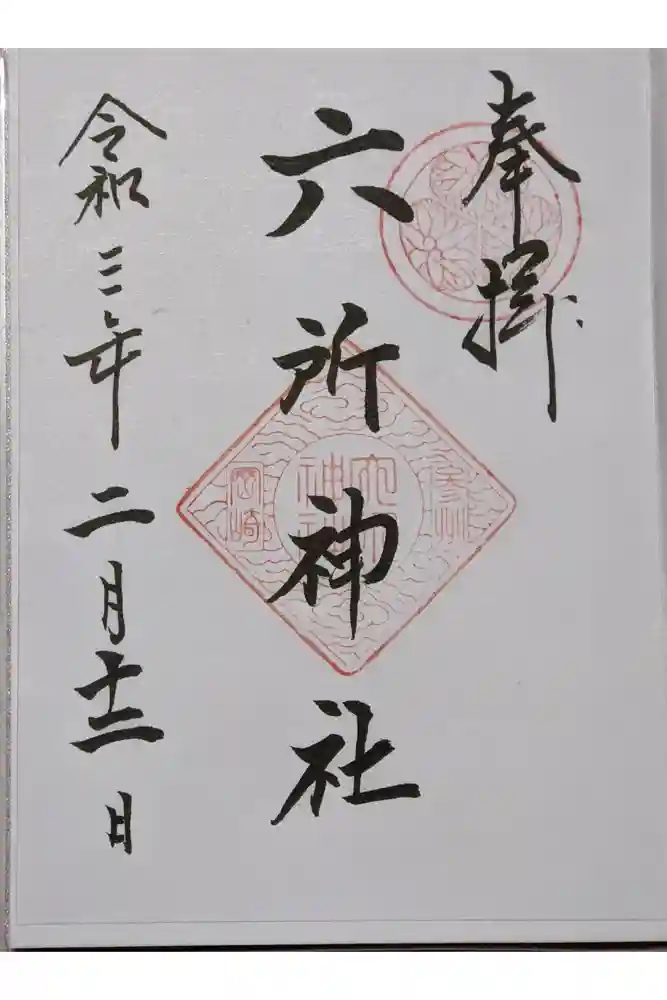 奉拝
六所神社
参州
六所神社
岡崎
令和三年二月十二日